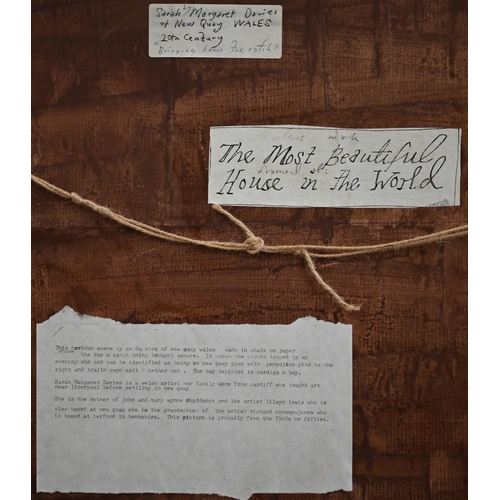 Sarah Margaret Davies
of New Quay WALES
20th Century
"Bringing home the catch"
The Most Beautiful
framed at:
House in the World
This harbour scene by sm davies of new quay wales made in chalk on paper
shows the day's catch being brought ashore. It shows the clouds tinged by an
evening sun and can be identified as being on new quay pier with penpolion pier to the
right and traith gwyn spit. The bay depicted is cardigan bay.
Sarah Margaret Davies is a welsh artist her family were from cardiff who taught art
near liverpool before settling in new quay
She is the mother of john and mary wynne and the artist lilwyn lewis she is
also based at new quay she is the grandmother of the artist richard conway-jones who
is based at twyford in berkshire. This picture is probably from the 1960s or fifties.